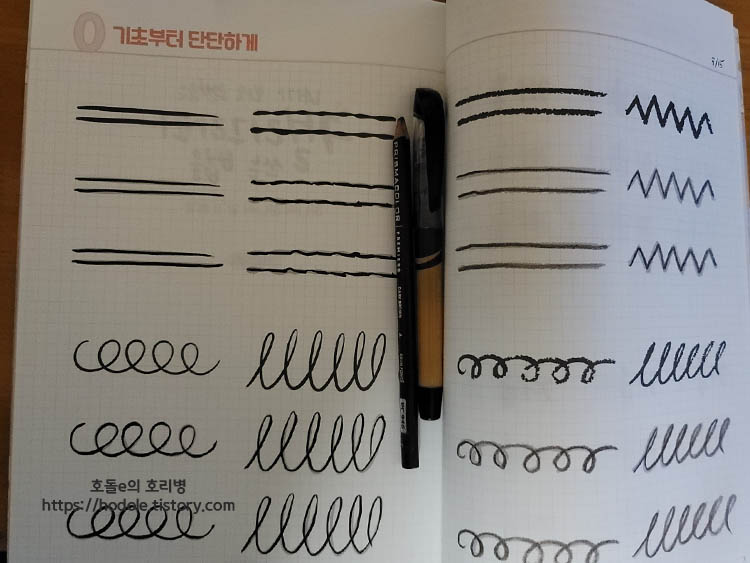 0 기초부터 단단하게
9/15
PRISMACOLOR
호돌e의 호리병
https://hodole.tistory.com